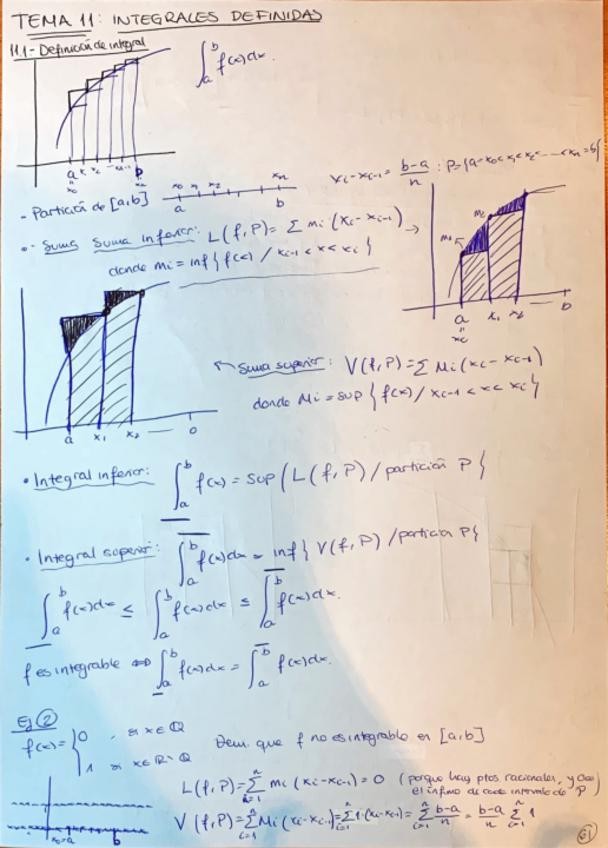 TEMA 11: INTEGRALES DEFINIDAS
11.1- Definición de integral
∫_a^b f(x)dx.
a x₁ x₂ ... b
x₀ xₙ
- Partición de [a,b]
x₀ x₁ x₂ xₙ
a b
xᵢ-xᵢ₋₁ = (b-a)/n : P={a=x₀<x₁<x₂<......<xₙ=b}
- Suma Suma inferior: L(f,P)= Σ mᵢ·(xᵢ-xᵢ₋₁) →
donde mᵢ = inf{f(x) / xᵢ₋₁<x<xᵢ}
m₁ m₂
a x₁ x₂ — b
x₀
↖ Suma superior: V(f,P)=Σ Mᵢ(xᵢ-xᵢ₋₁)
donde Mᵢ = sup{f(x) / xᵢ₋₁<x<xᵢ}
a x₁ x₂ — b
• Integral inferior: ∫_a^b f(x) = sup{L(f,P) / partición P}
• Integral superior: ∫_a^b f(x)dx = inf{V(f,P) / partición P}
∫_a^b f(x)dx ≤ ∫_a^b f(x)dx ≤ ∫_a^b f(x)dx.
f es integrable ⇔ ∫_a^b f(x)dx = ∫_a^b f(x)dx.
Ej ②
f(x)= { 0 , si x∈Q
1 si x∈R-Q
Dem. que f no es integrable en [a,b]
L(f,P)=Σ mᵢ(xᵢ-xᵢ₋₁) = 0 (porque hay ptos racionales, y 0 es
el ínfimo de cada intervalo de P
V(f,P)=Σ_{i=1}^n Mᵢ(xᵢ-xᵢ₋₁)=Σ_{i=1}^n 1·(xᵢ-xᵢ₋₁)=Σ_{i=1}^n (b-a)/n = (b-a)/n Σ_{i=1}^n 1
x₀=a b
61